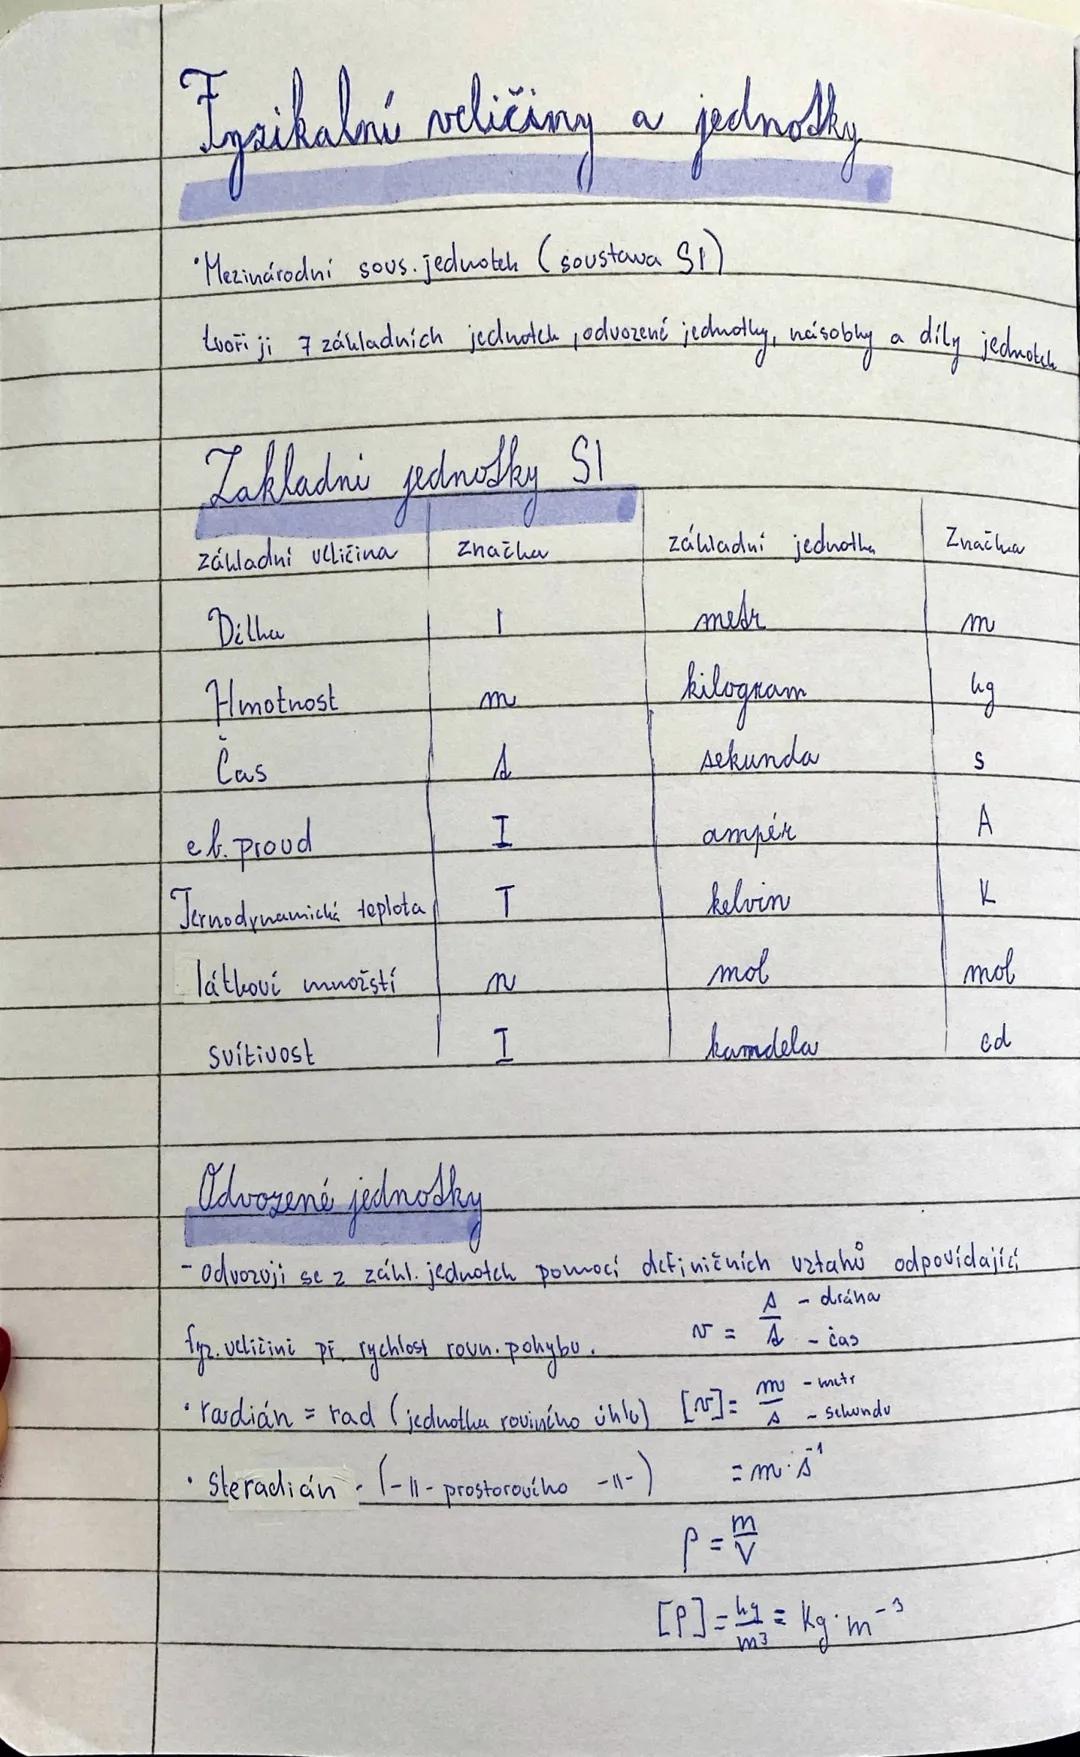 Fyzikalní veličiny a jednotky
• Mezinárodní sous. jednotek (soustava SI)
tvoří ji 7 základních jednotek, odvozené jednotky, násobky a díly jednotek
Zakladní jednotky SI
základní veličina | značka | základní jednotka | Značka
Délka | l | metr | m
Hmotnost | m | kilogram | kg
Čas | t | sekunda | s
el. proud | I | ampér | A
Termodynamická teplota | T | kelvin | K
látkové množství | n | mol | mol
svítivost | I | kandela | cd
Odvozené jednotky
- odvozují se z zákl. jednotek pomocí definičních vztahů odpovídající
fyz. veličině př. rychlost rovn. pohybu. v = s/t - dráha - čas
• radián = rad (jednotka rovinného úhlu) [v] = m/s - metr - sekundu
• steradián - (-||- prostorového -||-) = m·s⁻¹
ρ = m/V
[ρ] = kg/m³ = kg·m⁻³